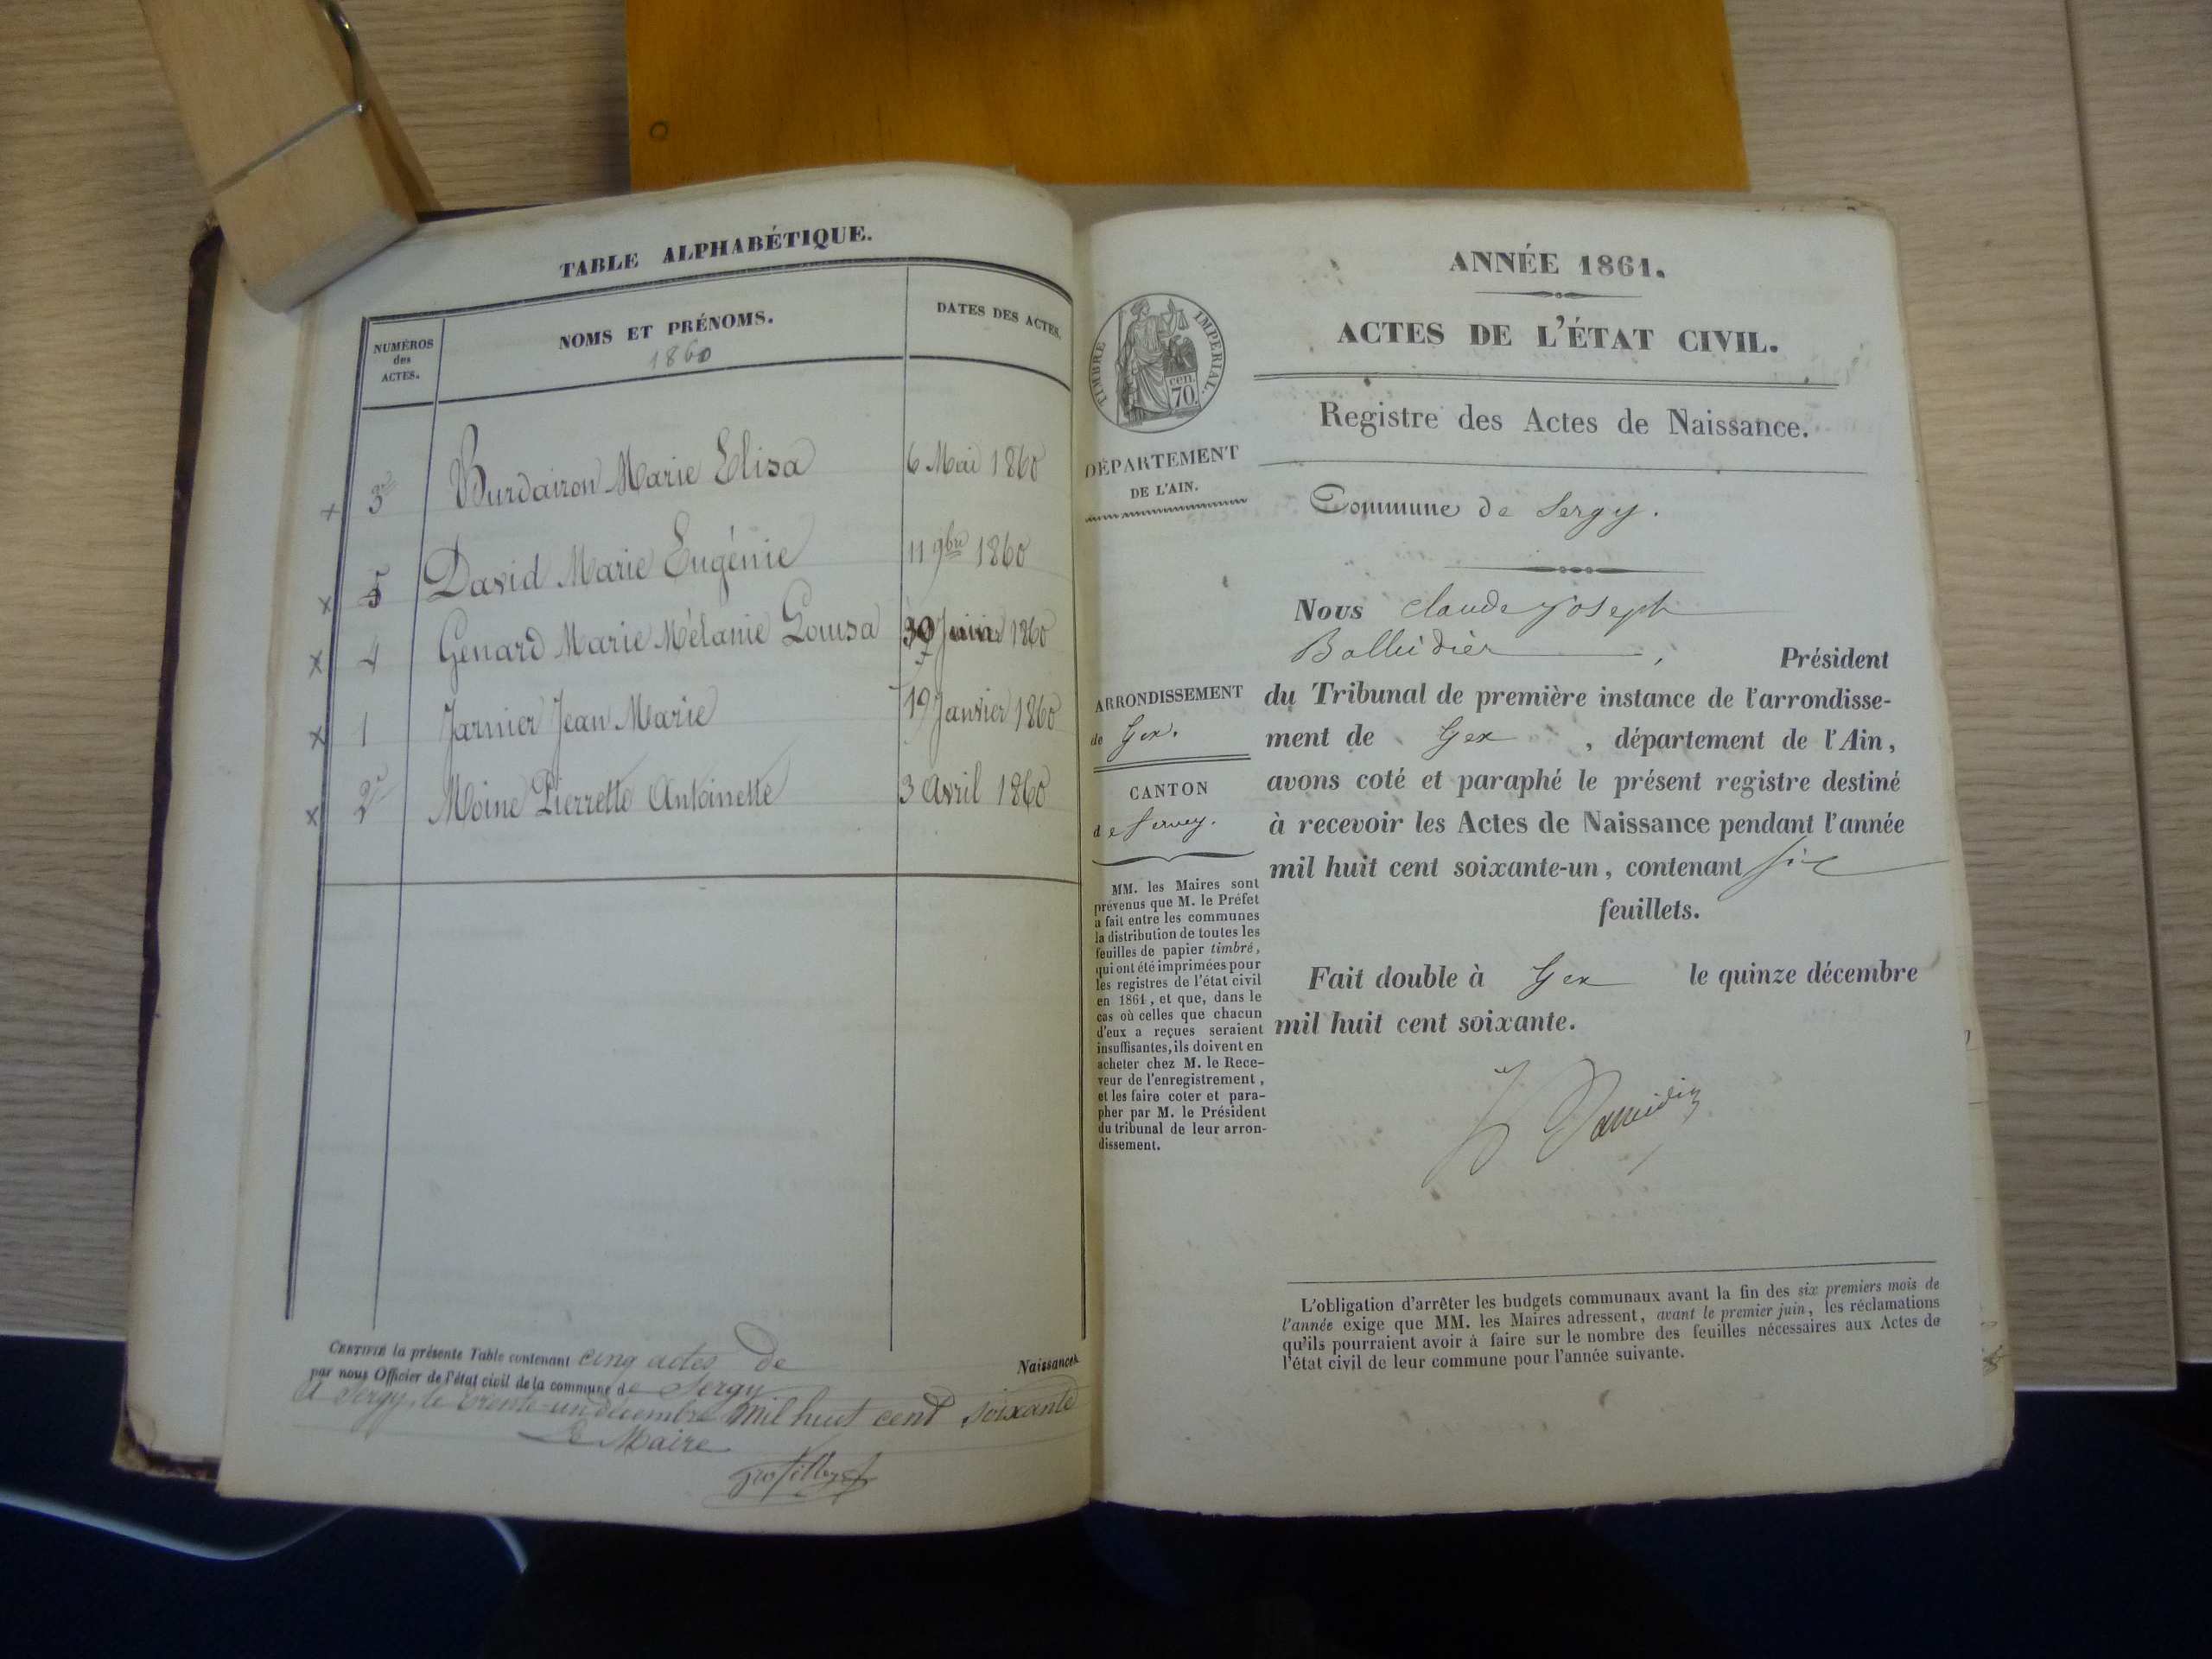 TABLE ALPHABÉTIQUE.
NUMÉROS
des
ACTES.
NOMS ET PRÉNOMS.
1860
DATES DES ACTES.
3 Burdairon Marie Elisa 6 Mai 1860
5 David Marie Eugénie 11 9bre 1860
4 Genard Marie Mélanie Louisa 30 Juin 1860
1 Jarnier Jean Marie 19 Janvier 1860
2 Moine Pierrette Antoinette 3 Avril 1860
CERTIFIÉ la présente Table contenant cinq actes de Naissances
par nous Officier de l'état civil de la commune de Sergy
A Sergy, le trente-un décembre mil huit cent soixante
Le Maire
ANNÉE 1861.
ACTES DE L'ÉTAT CIVIL.
TIMBRE IMPERIAL.
cen.
70.
Registre des Actes de Naissance.
DÉPARTEMENT
DE L'AIN.
Commune de Sergy.
Nous Claude Joseph
Président
ARRONDISSEMENT
de Gex.
CANTON
de Ferney.
MM. les Maires sont
prévenus que M. le Préfet
a fait entre les communes
la distribution de toutes les
feuilles de papier timbré,
qui ont été imprimées pour
les registres de l'état civil
en 1861, et que, dans le
cas où celles que chacun
d'eux a reçues seraient
insuffisantes, ils doivent en
acheter chez M. le Rece-
veur de l'enregistrement,
et les faire coter et para-
pher par M. le Président
du tribunal de leur arron-
dissement.
du Tribunal de première instance de l'arrondisse-
ment de Gex, département de l'Ain,
avons coté et paraphé le présent registre destiné
à recevoir les Actes de Naissance pendant l'année
mil huit cent soixante-un, contenant six
feuillets.
Fait double à Gex le quinze décembre
mil huit cent soixante.
L'obligation d'arrêter les budgets communaux avant la fin des six premiers mois de
l'année exige que MM. les Maires adressent, avant le premier juin, les réclamations
qu'ils pourraient avoir à faire sur le nombre des feuilles nécessaires aux Actes de
l'état civil de leur commune pour l'année suivante.